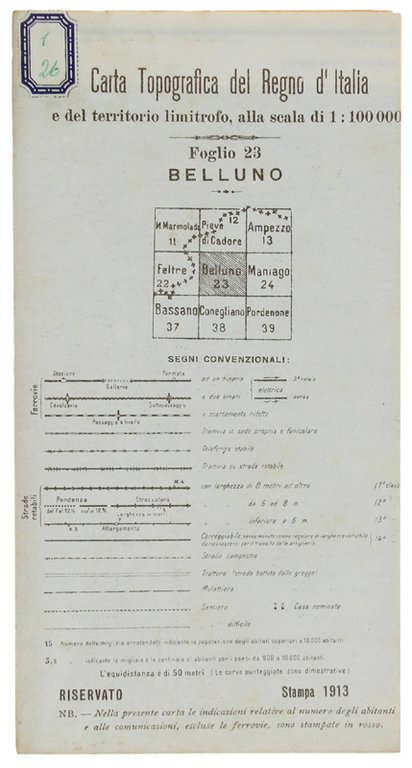 1
26
Carta Topografica del Regno d'Italia
e del territorio limitrofo, alla scala di 1:100000
Foglio 23
BELLUNO
M. Marmolada 11
Pieve di Cadore 12
Ampezzo 13
Feltre 22
Belluno 23
Maniago 24
Bassano 37
Conegliano 38
Pordenone 39
SEGNI CONVENZIONALI:
Ferrovie
Stazione Fermata
Galleria
ad un binario
3ª rotaia
elettrica
Cavalcavia Sottopassaggio
a due binari
aerea
Passaggio a livello
a scartamento ridotto
Tramvia in sede propria e funicolare
Teleferica stabile
Tramvia su strada rotabile
Strade rotabili
M.4
con larghezza di 8 metri ed oltre
(1ª class
Pendenza
Strozzatura
da 6 ad 8 m.
(2ª
Larghezza in metri
K.3 Allargamento
inferiore a 6 m.
(3ª
Carreggiabile
(4ª
Strada campestre
Trattura (strada battuta dalle greggi)
Mulattiera
Sentiero
Casa nominata
difficile
15 Numero delle migliaia arrotondato indicante la popolazione degli abitati superiori a 10.000 abitanti.
indicante le migliaia e le centinaia di abitanti per i paesi da 900 a 10.000 abitanti.
L'equidistanza è di 50 metri (Le curve punteggiate sono dimostrative)
RISERVATO Stampa 1913
NB. — Nella presente carta le indicazioni relative al numero degli abitanti
e alle comunicazioni, escluse le ferrovie, sono stampate in rosso.